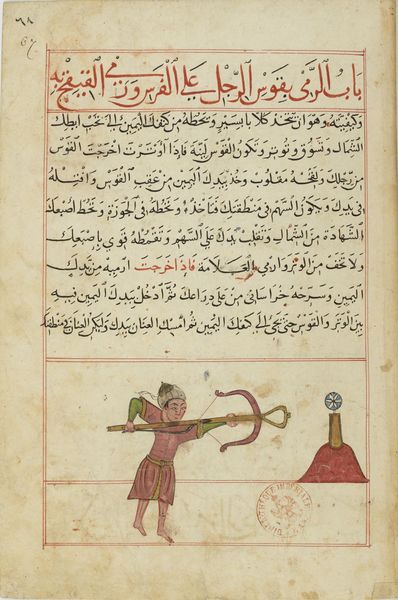 ٦٨
67
باب الرمى بقوس الرجل على الفرس ورمى القيقج به
وكيفيته وهو ان تتخذ كلابا بسير وتحطه من كتفك اليمين الى تحت ابطك
الشمال وتسوق وتوتر وتكون القوس لينة فاذا اوترت اخرجت القوس
من رجلك وتلفحه مقلوب وخذ بيدك اليمين من عقب القوس وافتله
فى يدك ويكون السهم فى منطقتك فتاخذه وتحطه فى الجوزة وتحط اصبعك
الشهادة من الشمال وتقلب يدك على السهم وتقمطه قوى باصبعك
ولا تخف من الوتر وارمى العلامة فاذا خرجت ارميه من يدك
اليمين وسرحه خراسانى من على دراعك ثم ادخل بيدك اليمين فيه
بين الوتر والقوس حتى يجى الى كتفك اليمين ثم امسك العنان بيدك وليكن العنان فى منطقتك
BIBLIOTHEQUE IMPERIALE